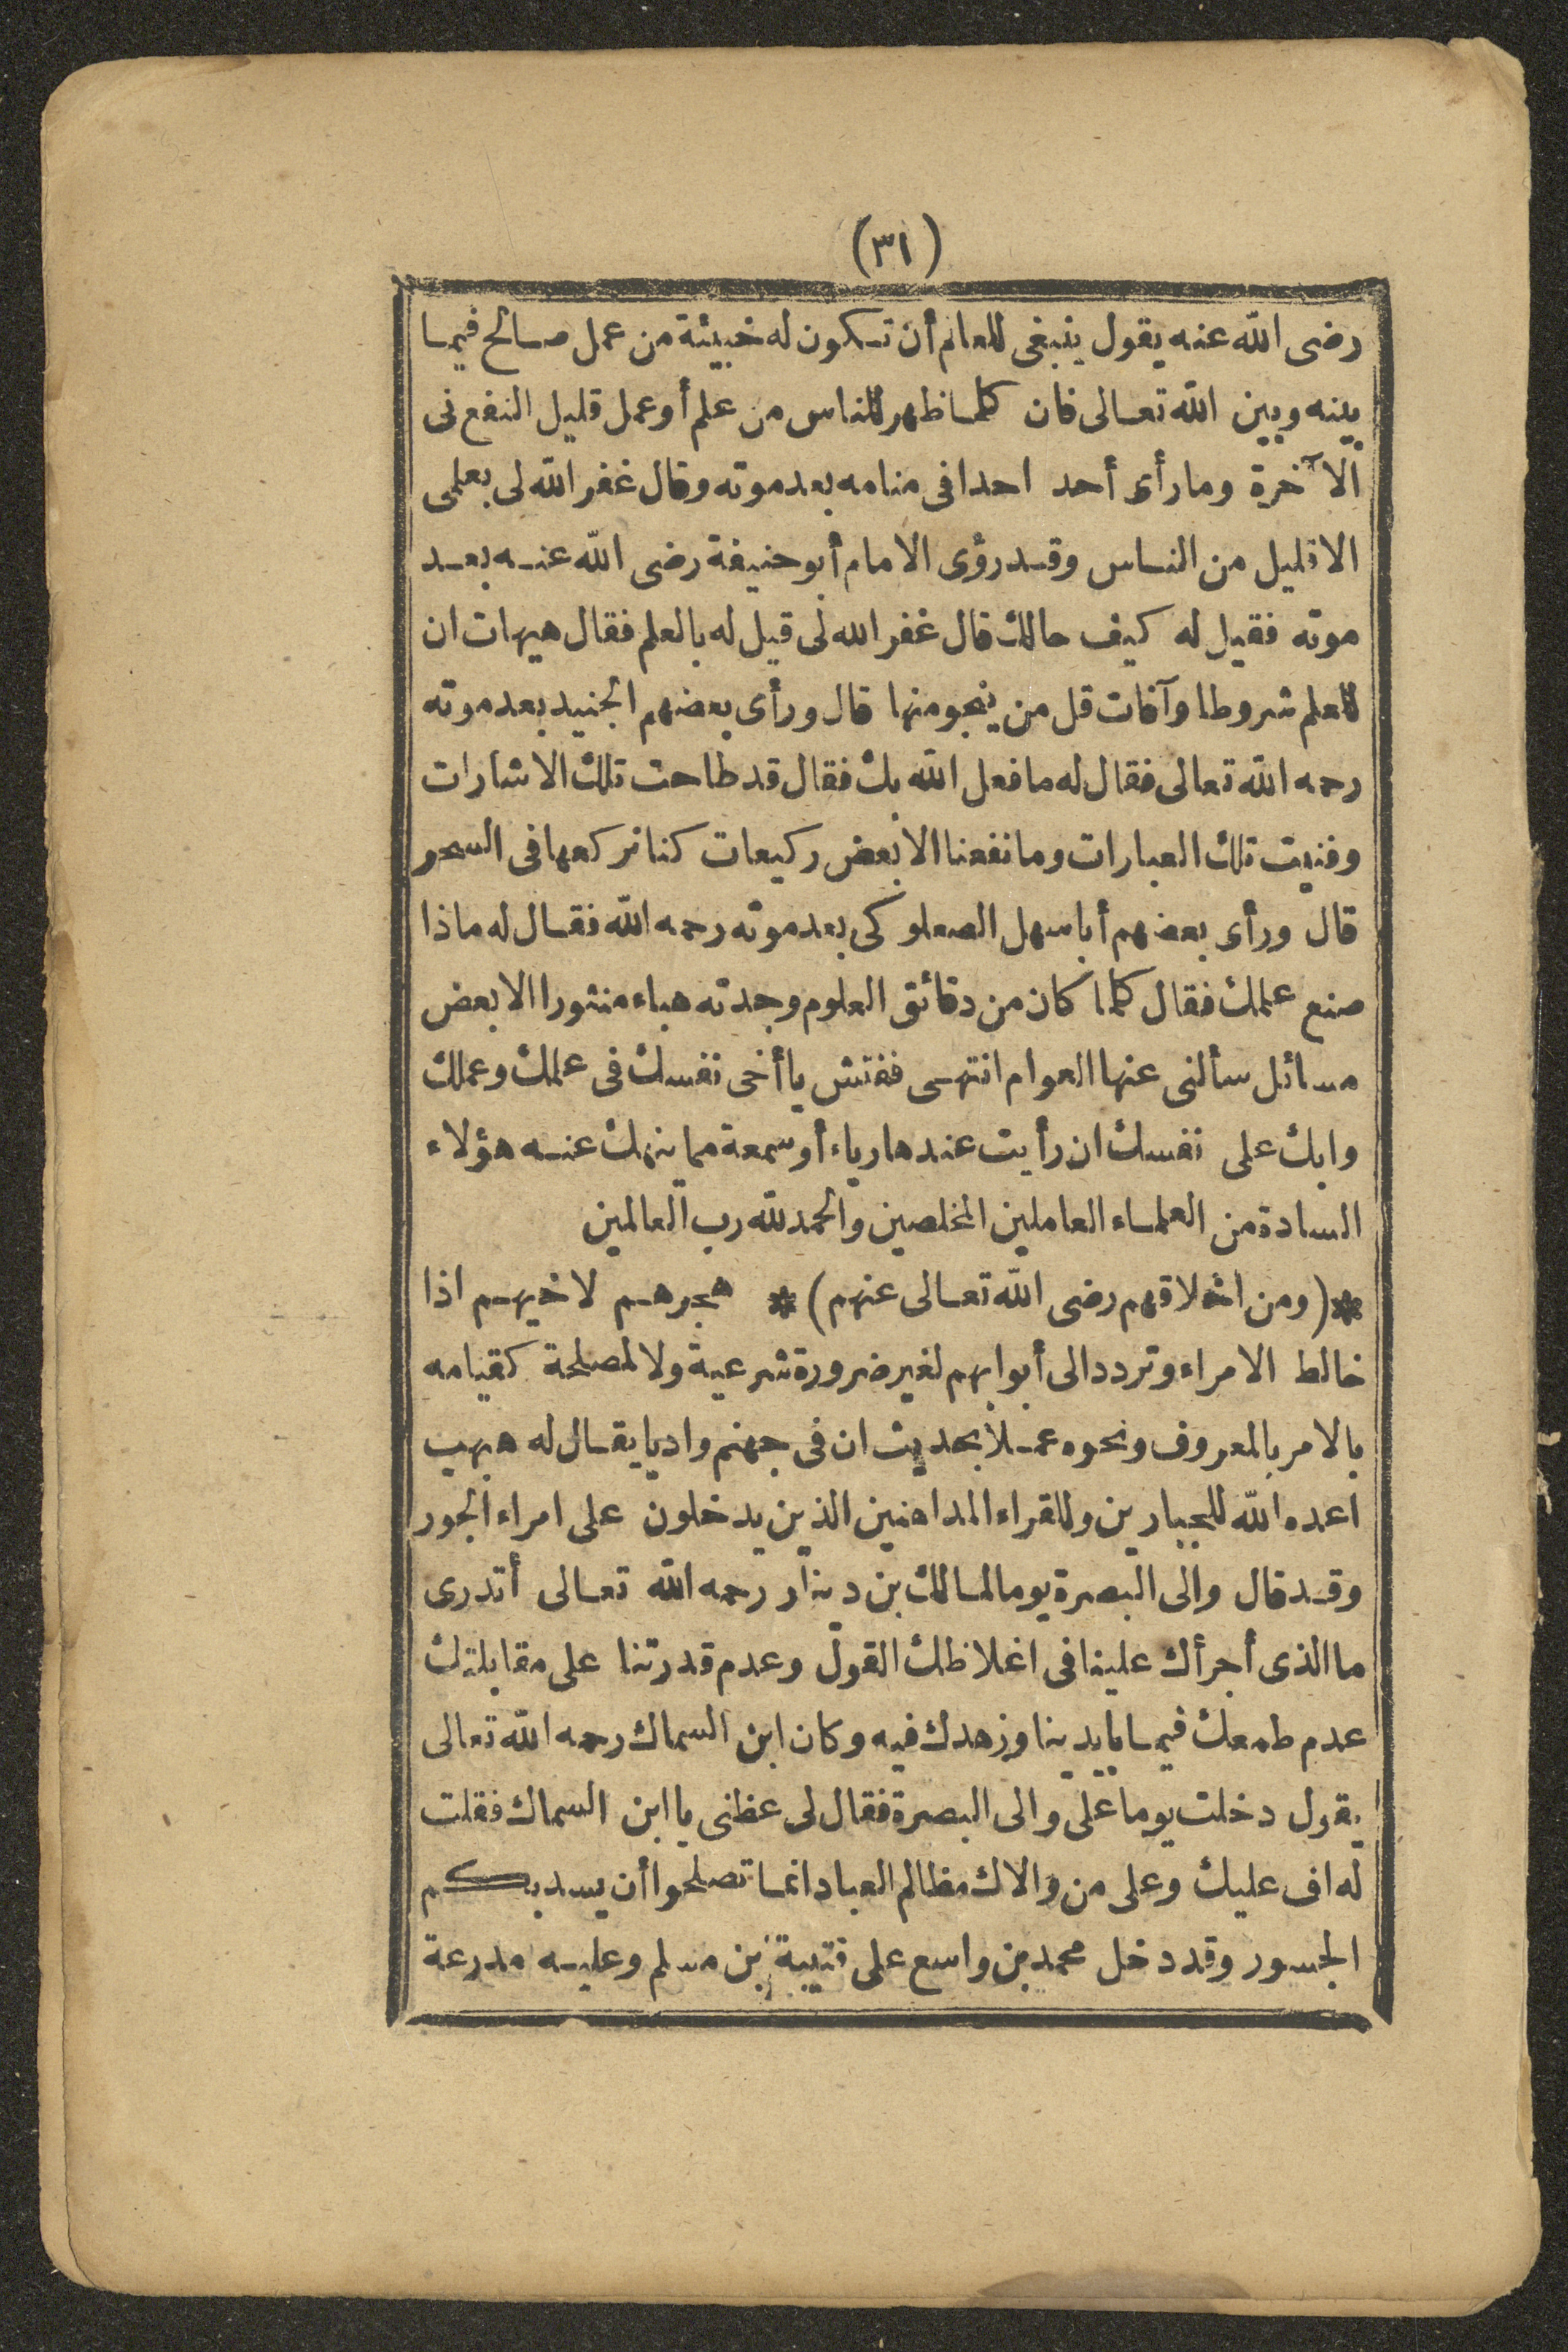 (٣١)
رضى الله عنه يقول ينبغى للعالم أن تكون له خبيئة من عمل صالح فيما
بينه وبين الله تعالى فان كلما ظهر للناس من علم أو عمل قليل النفع فى
الآخرة وما رأى أحد احدا فى منامه بعد موته وقال غفر الله لى بعلمى
الا قليل من الناس وقد رؤى الامام أبو حنيفة رضى الله عنه بعد
موته فقيل له كيف حالك قال غفر الله لى قيل له بالعلم فقال هيهات ان
للعلم شروطا وآفات قل من ينجو منها قال ورأى بعضهم الجنيد بعد موته
رحمه الله تعالى فقال له ما فعل الله بك فقال قد طاحت تلك الاشارات
وفنيت تلك العبارات وما نفعنا الا بعض ركيعات كنا نركعها فى السحر
قال ورأى بعضهم أبا سهل الصعلوكى بعد موته رحمه الله فقال له ماذا
صنع علمك فقال كلما كان من دقائق العلوم وجدته هباء منثورا الا بعض
مسائل سألنى عنها العوام انتهى ففتش يا أخى نفسك فى علمك وعملك
وابك على نفسك ان رأيت عندها رياء أو سمعة مما ينهك عنه هؤلاء
السادة من العلماء العاملين المخلصين والحمد لله رب العالمين
*(ومن اخلاقهم رضى الله تعالى عنهم)* هجرهم لاخيهم اذا
خالط الامراء وتردد الى أبوابهم لغير ضرورة شرعية ولا لمصلحة كقيامه
بالامر بالمعروف ونحوه عملا بحديث ان فى جهنم واديا يقال له هبهب
اعده الله للجبارين وللقراء المداهنين الذين يدخلون على امراء الجور
وقد قال والى البصرة يوما لمالك بن دينار رحمه الله تعالى أتدرى
ما الذى أجرأك علينا فى اغلاظك القول وعدم قدرتنا على مقابلتك
عدم طمعك فيما بايدينا وزهدك فيه وكان ابن السماك رحمه الله تعالى
يقول دخلت يوما على والى البصرة فقال لى عظنى يا ابن السماك فقلت
له اف عليك وعلى من والاك مظالم العباد انما تصلحوا أن يسد بكم
الجسور وقد دخل محمد بن واسع على قتيبة بن مسلم وعليه مدرعة